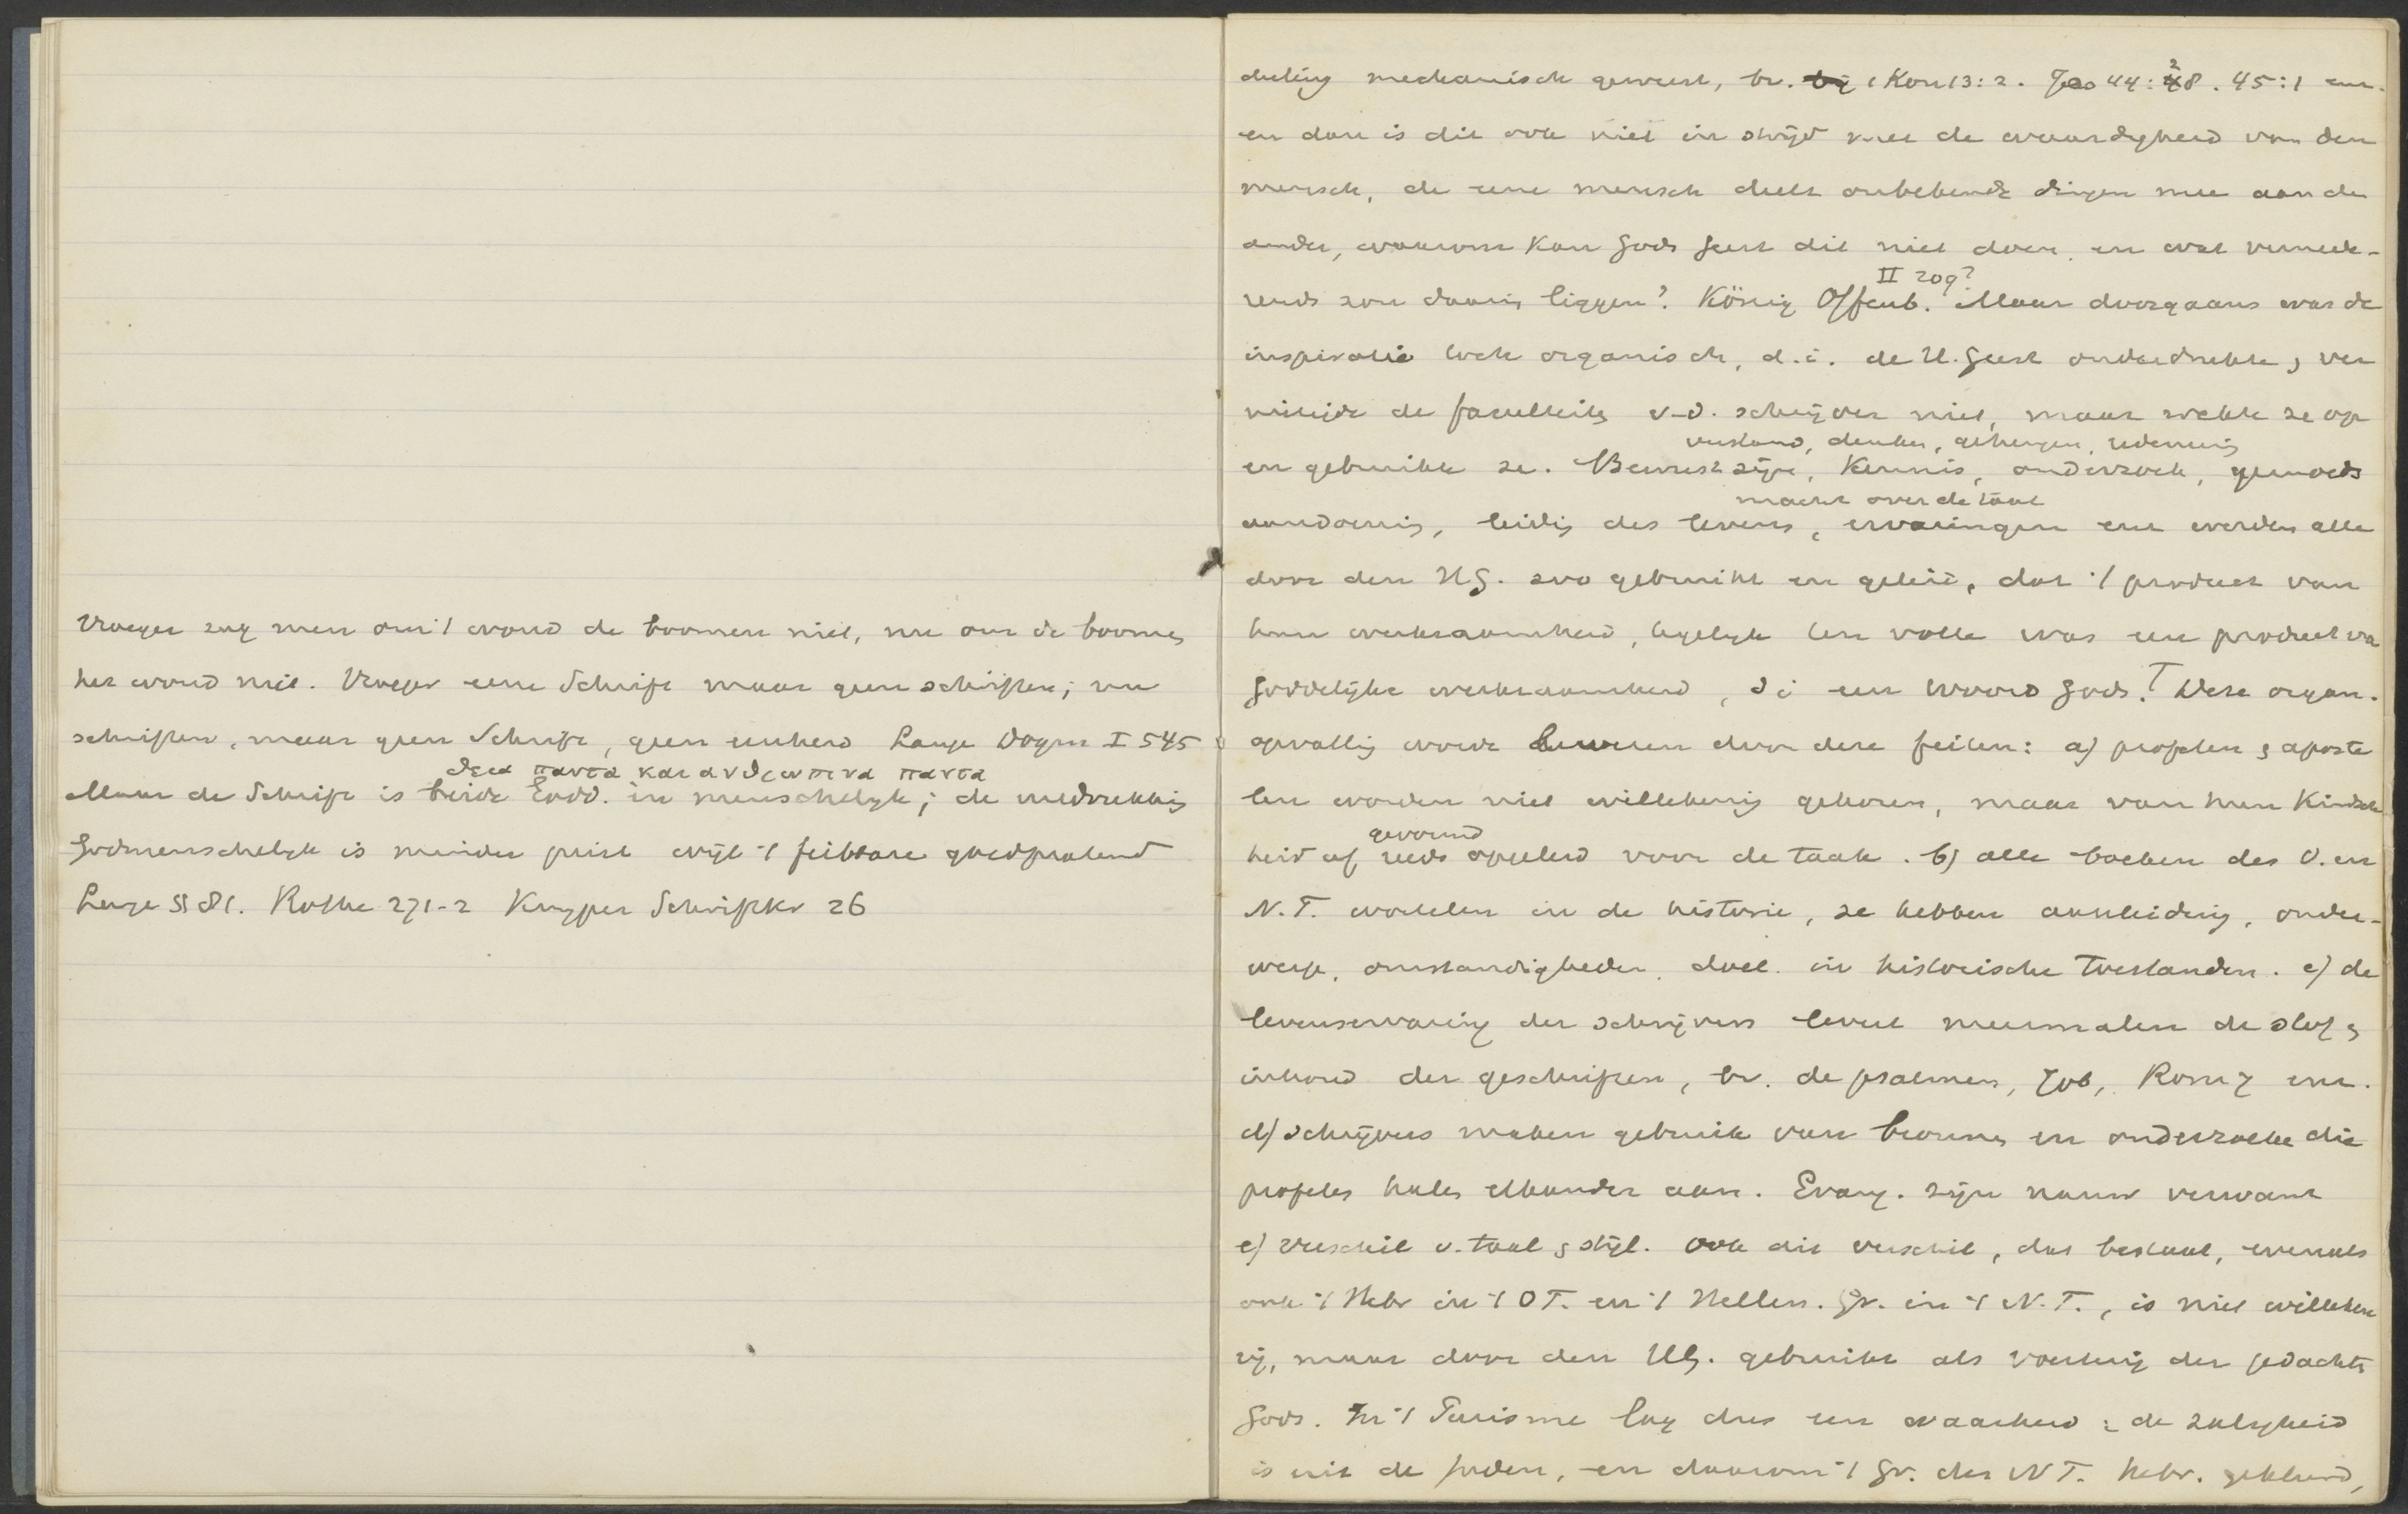 Vroeger zag men om 't woud de boomen niet, nu om de boomen
het woud niet. Vroeger eene Schrift maar geen schriften; nu
schriften, maar geen Schrift, geen eenheid Lange Dogm I 545
θεια παντα και ανθρωπινα παντα
Maar de Schrift is beide Godd. en menschelyk; de uitdrukking
Godmenschelyk is minder juist wijl 't feilbare
Lange § 81. Rothe 271-2 Kuyper Schriftkr 26
deeling mechanisch geweest, bv. 1 Kon 13:2. Jes 44:28. 45:1 enz.
en dan is dit ook niet in strijd met de waardigheid van den
mensch, de eene mensch deelt onbekende dingen mee aan de
ander, waarom kan Gods Geest dit niet doen, en wat verneede-
II 209?
rends zou daarin liggen? König Offenb. Maar doorgaans was de
inspiratie toch organisch, d.i. de H. Geest onderdrukte & ver
nietigde de faculteiten v.d. schrijver niet, maar wekte ze op
verstand, denken, geheugen, redeneering
en gebruikte ze. Bewustzijn, kennis, onderzoek, gemoeds
macht over de taal
aandoening, leiding des levens, ervaringen enz werden alle
door den HG. zoo gebruikt en geleid, dat 't product van
hun werkzaamheid, tegelyk ten volle was een product van
goddelijke werkzaamheid, di een woord Gods. Deze organ.
opvatting wordt bewezen door deze feiten: a) profeten & aposte
len worden niet willekeurig gekozen, maar van hun kindsch
gevormd
heid af reeds opgeleid voor de taak. b) alle boeken des O. en
N.T. wortelen in de historie, ze hebben aanleiding, onder-
werp, omstandigheden, doel in historische toestanden. c) de
levenservaring der schrijvers levert meermalen de stof &
inhoud der geschriften, bv. de psalmen, Job, Rom 7 enz.
d) schrijvers maken gebruik van bronnen en onderzoeken die
profeten halen elkander aan. Evang. zijn nauw verwant
e) verschil v. taal & stijl. Ook dit verschil, dat bestaat, evenals
ook 't Hebr in 't OT. en 't Hellen. Gr. in 't N.T., is niet willekeu
rig, maar door den HG. gebruikt als voertuig der gedachten
Gods. In 't Purisme lag dus een waarheid: de zaligheid
is uit de Joden, en daarom 't Gr. des NT. hebr. gekleurd,